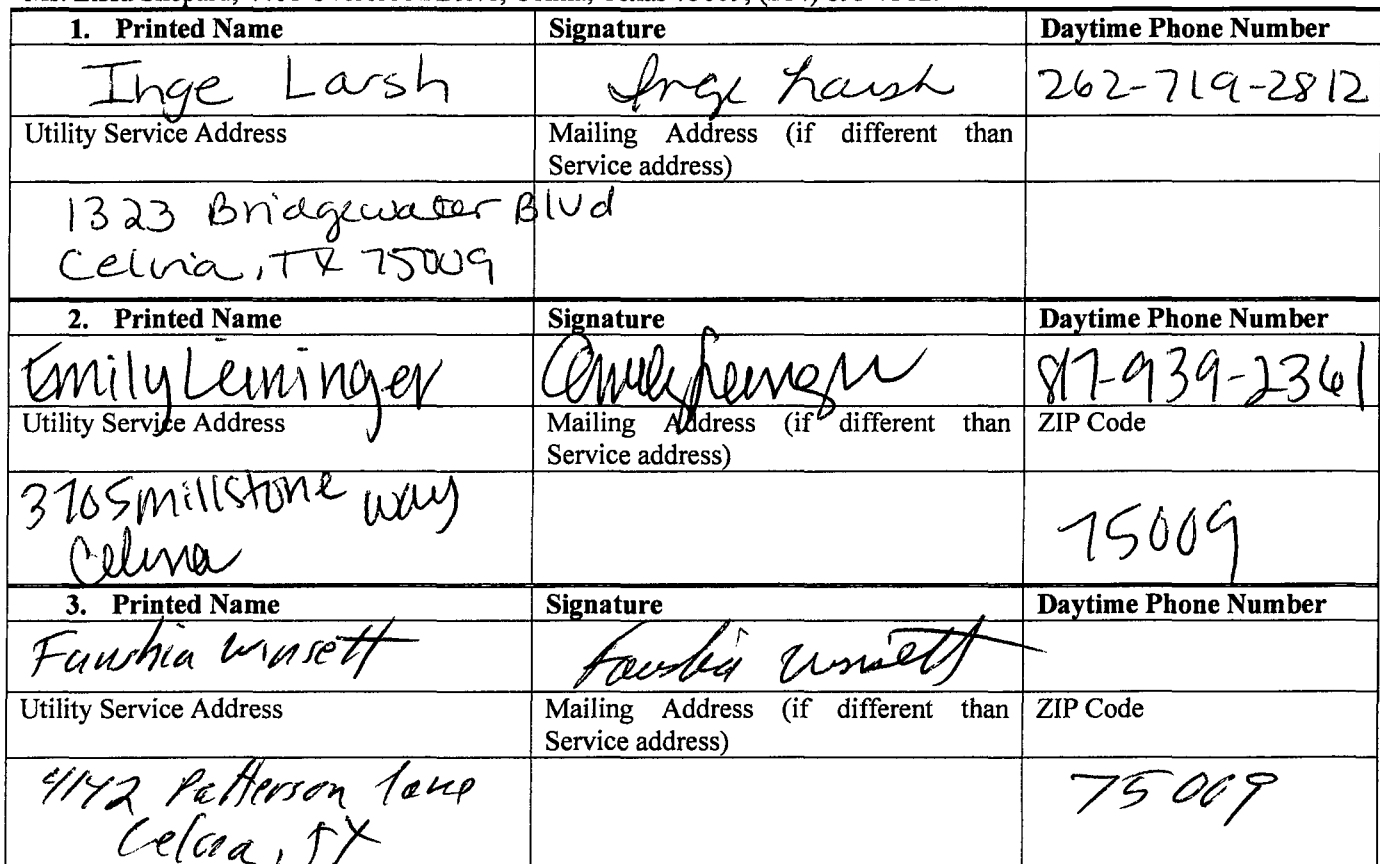 1. Printed Name Signature Daytime Phone Number
Inge Larsh Inge Larsh 262-719-2812
Utility Service Address Mailing Address (if different than
Service address)
1323 Bridgewater Blvd
Celina, TX 75009
2. Printed Name Signature Daytime Phone Number
Emily Leininger Emily Leininger 817-939-2361
Utility Service Address Mailing Address (if different than ZIP Code
Service address)
3705 millstone way
Celina 75009
3. Printed Name Signature Daytime Phone Number
winsett winsett
Utility Service Address Mailing Address (if different than ZIP Code
Service address)
4142 Patterson lane 75009
Celina, TX